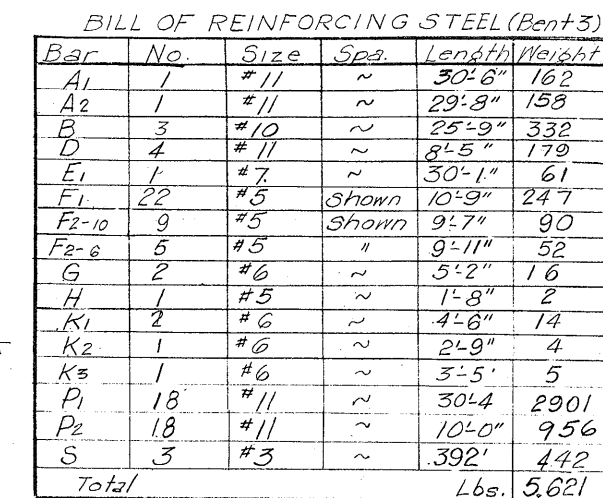 BILL OF REINFORCING STEEL (Bent 3)
Bar No. Size Spa. Length Weight
A1 1 #11 ~ 30'-6" 162
A2 1 #11 ~ 29'-8" 158
B 3 #10 ~ 25'-9" 332
D 4 #11 ~ 8'-5" 179
E1 1 #7 ~ 30'-1" 61
F1 22 #5 Shown 10'-9" 247
F2-10 9 #5 Shown 9'-7" 90
F2-6 5 #5 " 9'-11" 52
G 2 #6 ~ 5'-2" 16
H 1 #5 ~ 1'-8" 2
K1 2 #6 ~ 4'-6" 14
K2 1 #6 ~ 2'-9" 4
K3 1 #6 ~ 3'-5' 5
P1 18 #11 ~ 30'-4 2901
P2 18 #11 ~ 10'-0" 956
S 3 #3 ~ 392' 442
Total Lbs. 5,621